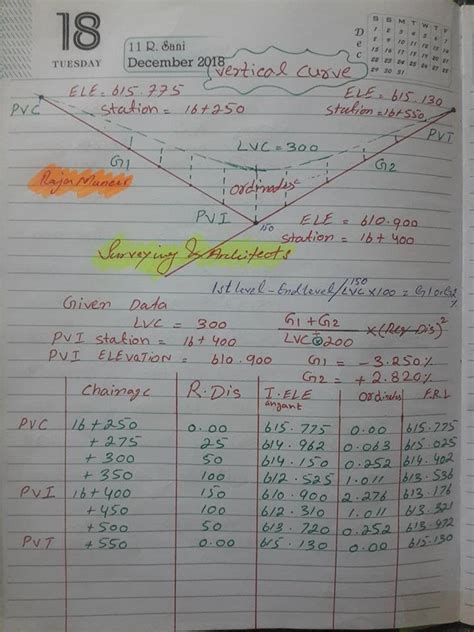 18
TUESDAY
11 R. Sani
December 2018
Dec
S S M T W T F
vertical curve
ELE = 615.775
Station = 16+250
PVC
ELE = 615.130
Station = 16+550
PVT
LVC = 300
G1
G2
ordinades
PVI
150
ELE = 610.900
Station = 16+400
Surveying & Architects
1st level - End level / LVC 150 x 100 = G1 or G2 %
Given Data
LVC = 300
PVI Station = 16+400
PVI ELEVATION = 610.900
G1 + G2
LVC 200
x (Req Dis)²
G1 = - 3.250%
G2 = + 2.820%
Chainage R.Dis T.ELE Ordinates F.R.L
angant
PVC 16+250 0.00 615.775 0.00 615.775
+275 25 614.962 0.063 615.025
+300 50 614.150 0.252 614.402
+350 100 612.525 1.011 613.536
PVI 16+400 150 610.900 2.276 613.176
+450 100 612.310 1.011 613.321
+500 50 613.720 0.252 613.972
PVT +550 0.00 615.130 0.00 615.130